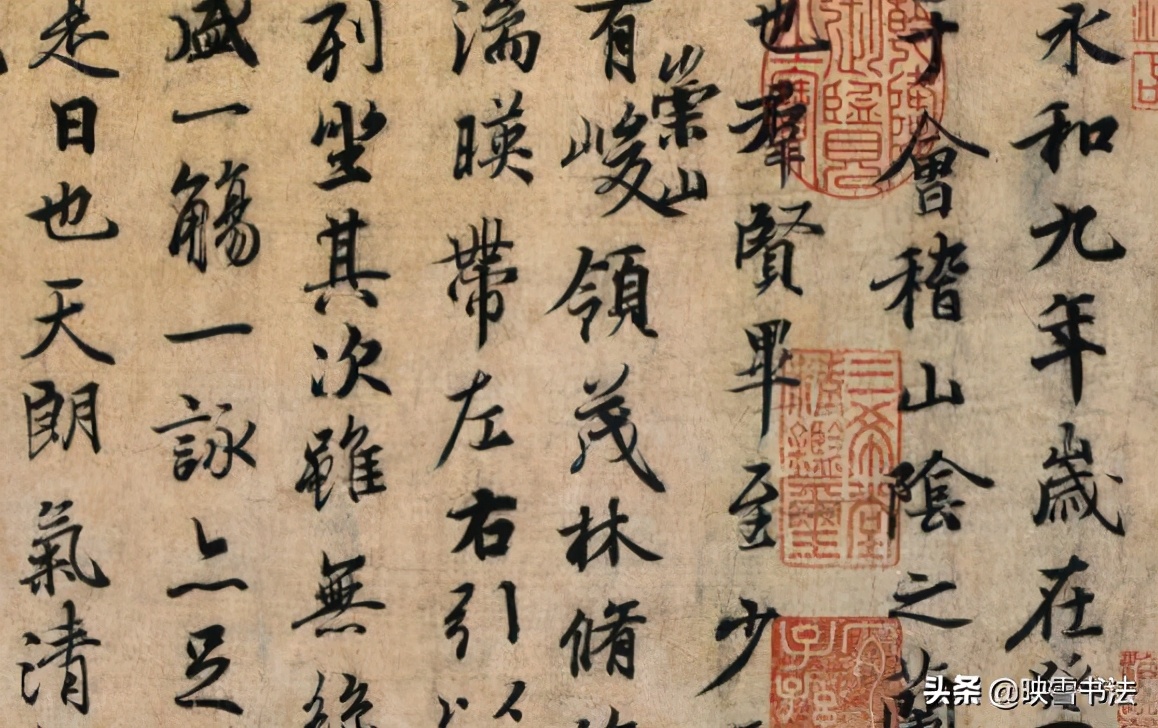 永和九年歲在
于會稽山陰之蘭
也羣賢畢至少
有崇山峻領茂林脩
湍暎帶左右引以
列坐其次雖無絲
盛一觴一詠亦足
是日也天朗氣清
三希堂精鑑璽
宜子孫
头条 @映雪书法